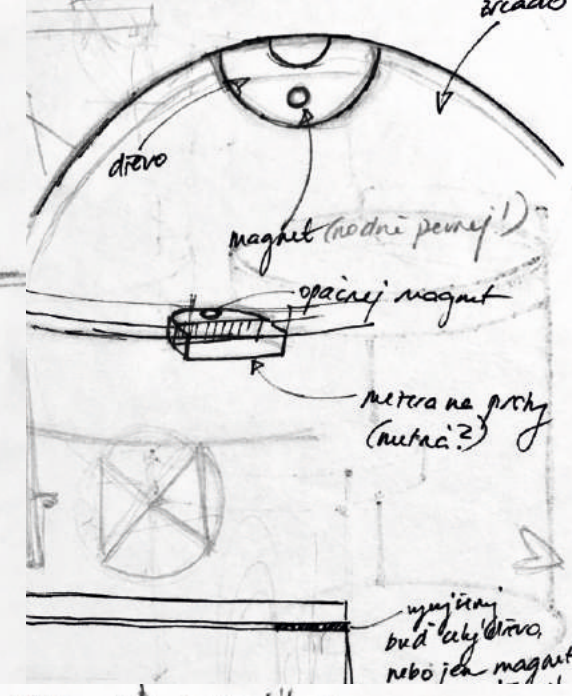 zrcadlo
dřevo
magnet (hodně pevnej!)
opačnej magnet
mezera na prsty
(nutná?)
buď celý dřevo,
nebo jen magnet